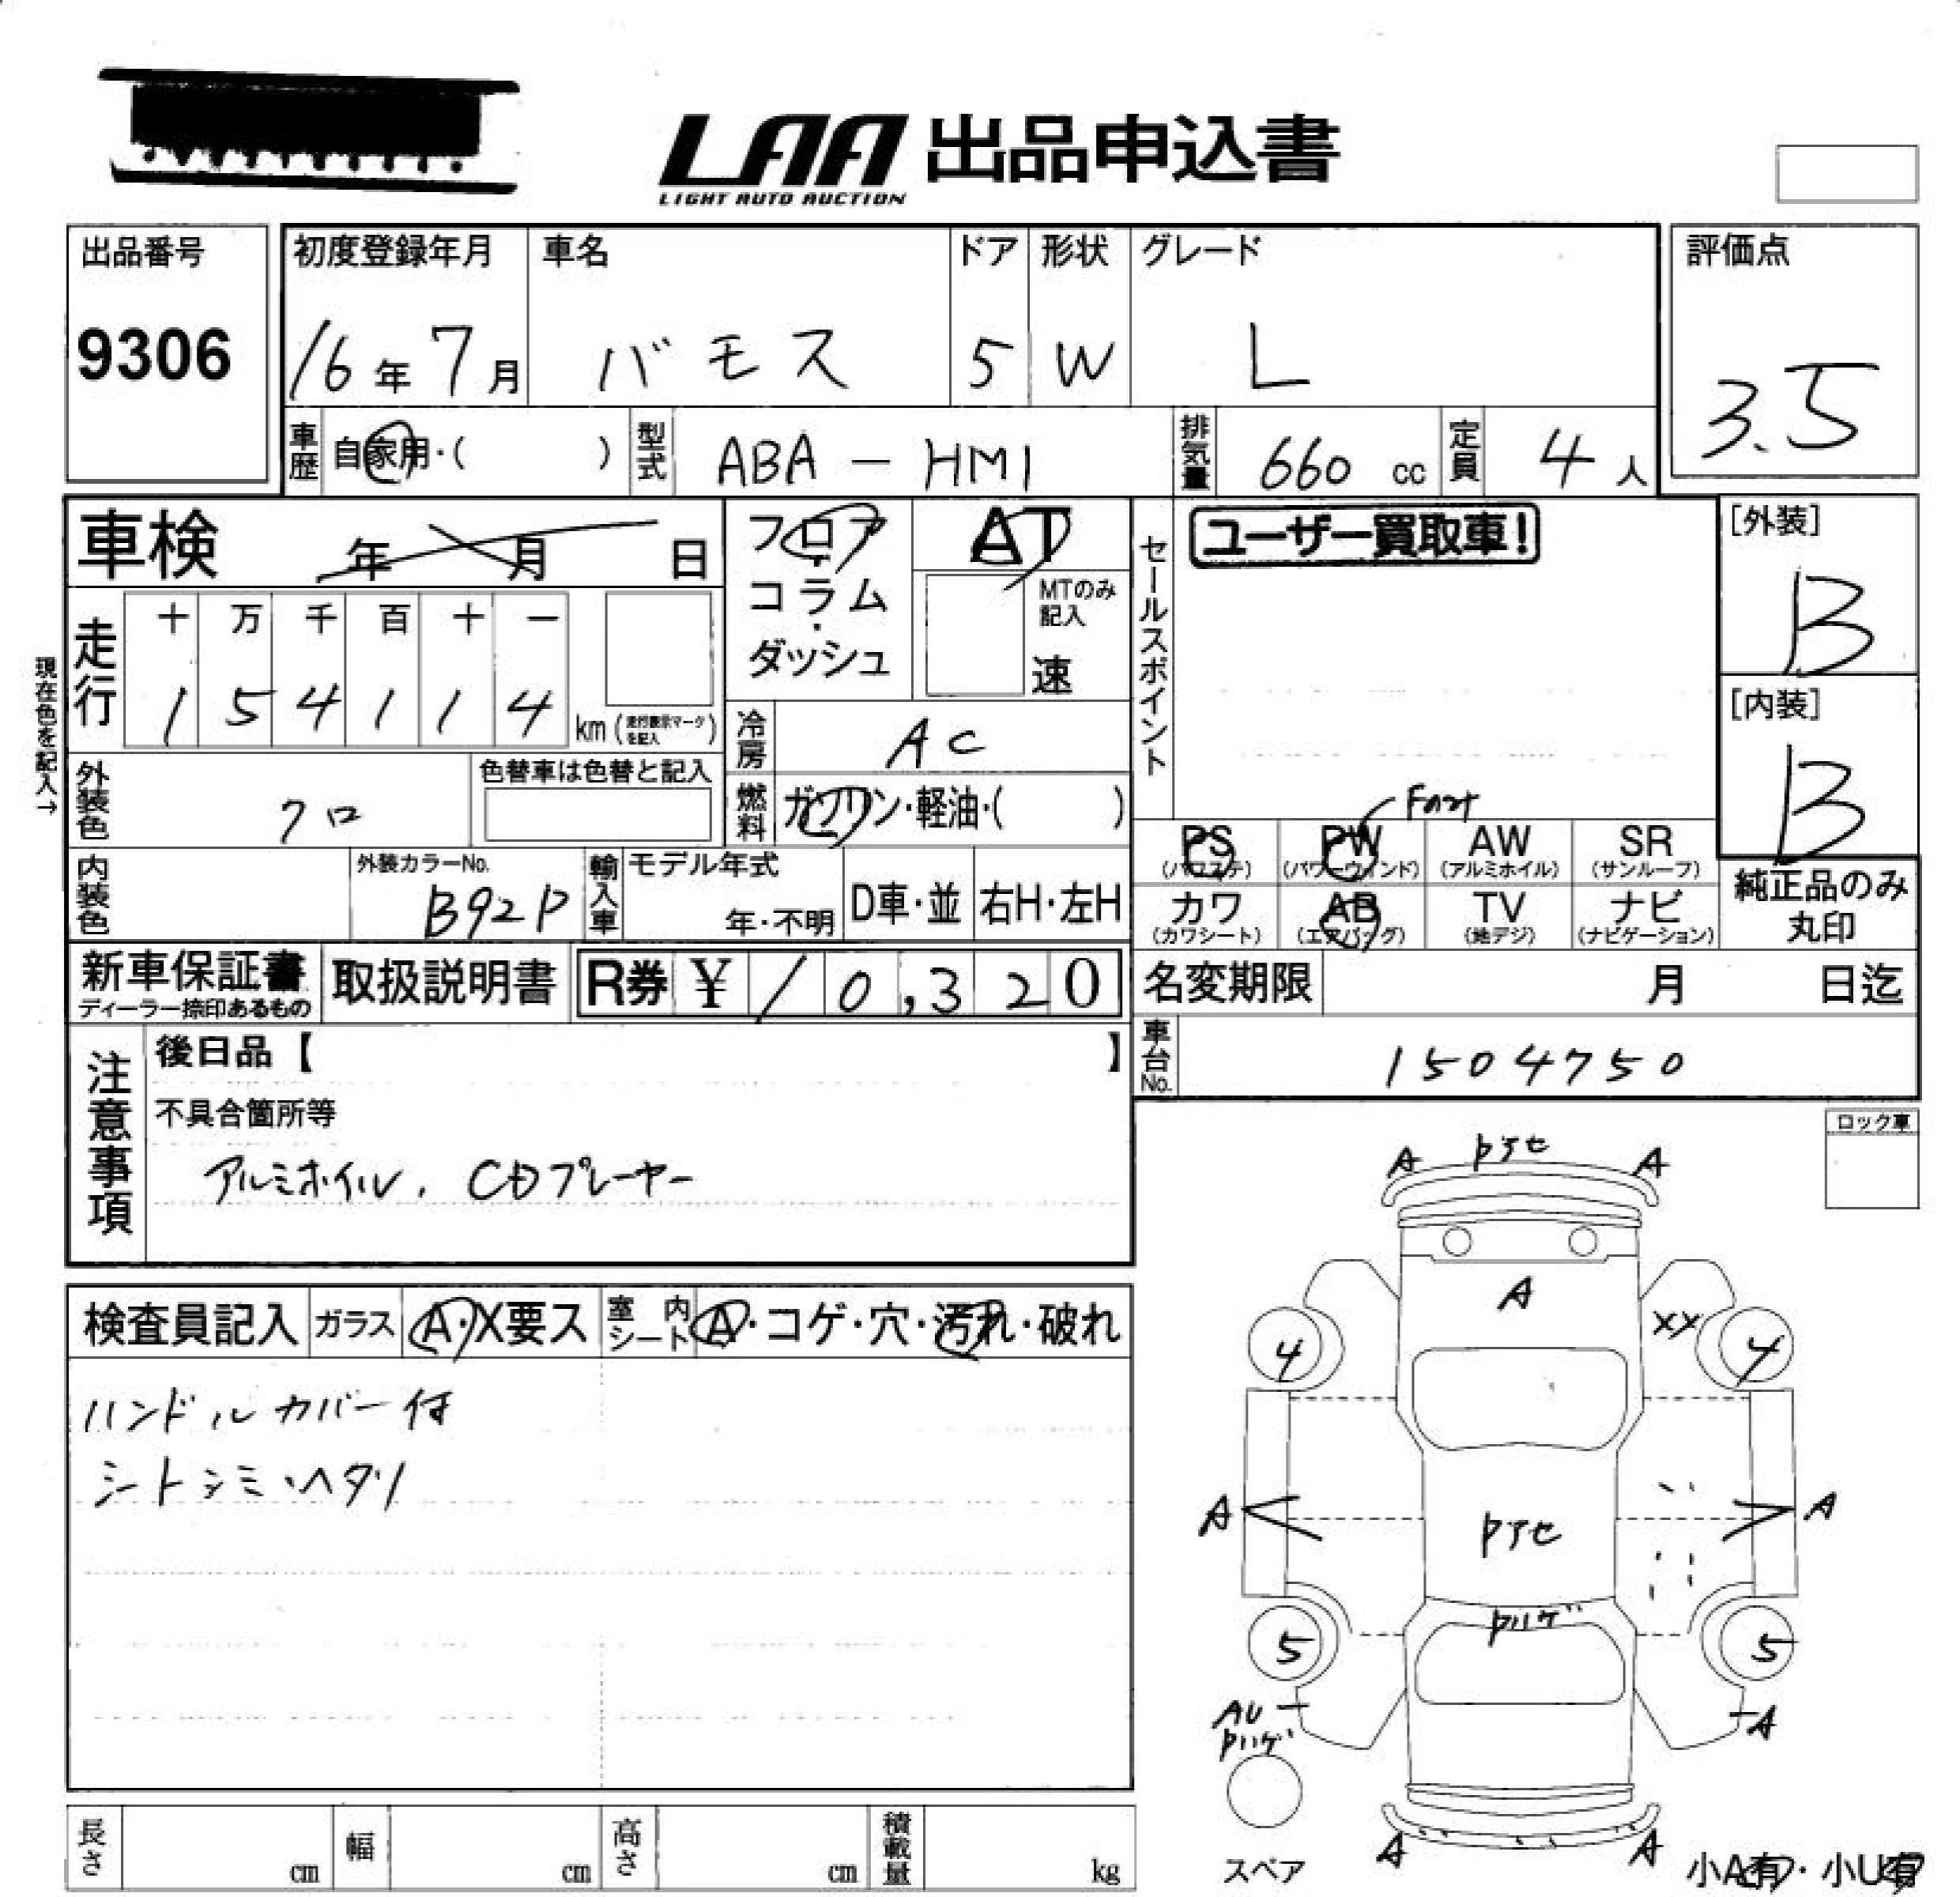 LAA 出品申込書
LIGHT AUTO AUCTION
出品番号
9306
初度登録年月
16年7月
車名
バモス
ドア
5
形状
W
グレード
L
評価点
3.5
車歴
自家用・( )
型式
ABA-HM1
排気量
660 cc
定員
4人
車検 年 月 日
フロア・コラム・ダッシュ
AT
MTのみ記入
速
セールスポイント
ユーザー買取車!
[外装]
B
[内装]
B
現在色を記入→
走行
十 万 千 百 十 一
1 5 4 1 1 4 km (走行表示マークを記入)
冷房
AC
外装色
クロ
色替車は色替と記入
燃料
ガソリン・軽油・( )
PS (パワステ)
PW (パワーウインド)
AW (アルミホイル)
SR (サンルーフ)
カワ (カワシート)
AB (エアバッグ)
TV (地デジ)
ナビ (ナビゲーション)
純正品のみ丸印
内装色
外装カラーNo.
B92P
輸入車
モデル年式
年・不明
D車・並
右H・左H
新車保証書
ディーラー捺印あるもの
取扱説明書
R券 ¥ 10,320
名変期限 月 日迄
車台No.
1504750
注意事項
後日品【 】
不具合箇所等
アルミホイル, CDプレーヤー
ロック車
検査員記入
ガラス
A・X要ス
室内シート
A・コゲ・穴・汚れ・破れ
ハンドルカバー付
シートシミ・ヘタリ
A Pアセ A
A
XX
4 4
A Pアセ A
Pハゲ
5 5
AU
Pハゲ
A
スペア
A A
小A有・小U有
長さ cm
幅 cm
高さ cm
積載量 kg